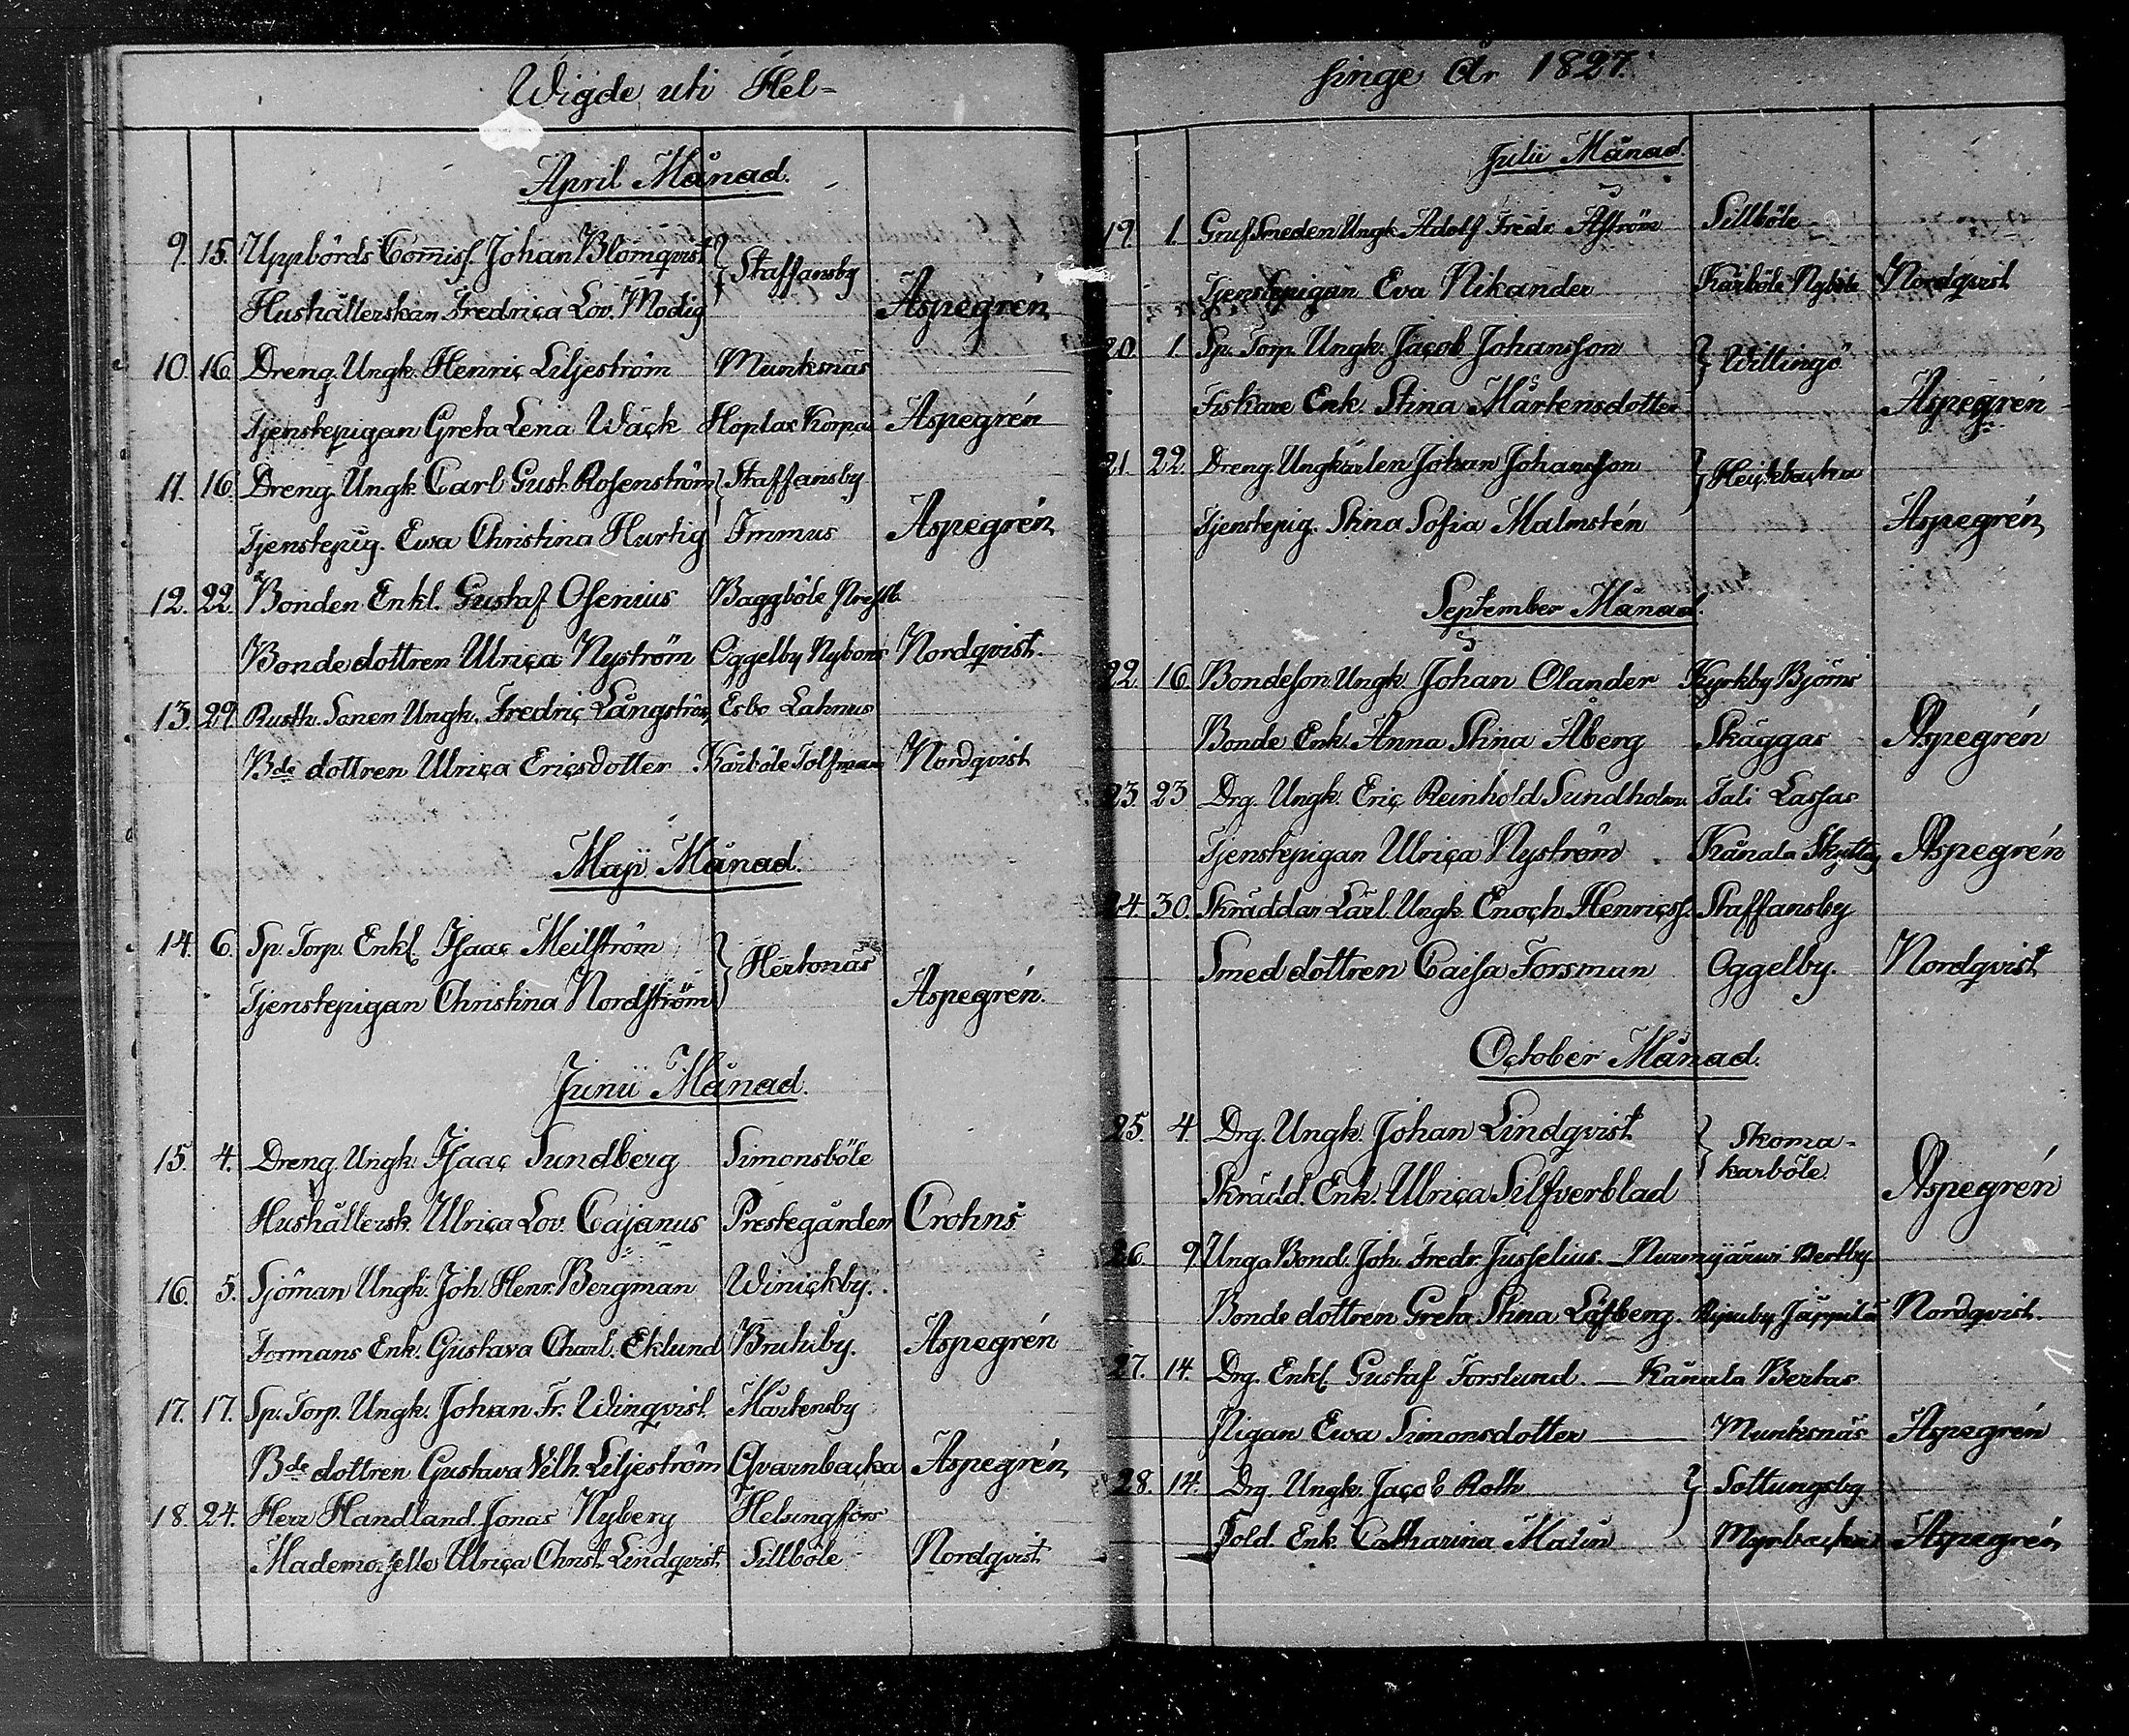 Wigde uti Hel-
April Månad.
9. 15. Uppbörds Com̄iss. Johan Blomqvist } Staffansby
Hushållerskan Fredrica Lov. Modig Aspegrén
10 16 Dreng. Ungk. Henric Liljeström Munksnäs
Tjenstepigan Greta Lena Wäck Hoplax Korpas Aspegrén
11. 16 Dreng. Ungk. Carl Gust. Rosenström } Staffansby
Tjenstepig. Ewa Christina Hurtig Immus Aspegrén
12. 22. Bonden Enkl. Gustaf Osenius Baggböle
Bondedottren Ulrica Nyström Oggelby Nybons Nordqvist.
13. 29. Rusth. Sonen Ungk. Fredric Långström Esbo Lahnus
Bde dottren Ulrica Ericsdotter Kårböle Tolfman Nordqvist
Maji Månad.
14. 6. Sp. Torp. Enkl. Isaac Meilström } Hertonäs
Tjenstepigan Christina Nordström Aspegrén.
Junii Månad.
15. 4. Dreng. Ungk. Isaac Sundberg Simonsböle
Hushållersk. Ulrica Lov. Cajanus Prestegården Crohns
16. 5. Sjöman Ungk. Joh. Henr. Bergman Winickby.
Formans Enk. Gustava Charl. Eklund Brutuby. Aspegrén
17. 17. Sp. Torp. Ungk. Johan Fr. Winqvist Mårtensby
Bde dottren Gustava Vilh. Liljeström Qvarnbacka Aspegrén
18. 24. Herr Handland. Jonas Nyberg Helsingfors
Mademoiselle Ulrica Christ. Lindqvist Sillböle Nordqvist
singe År 1827.
Julii Månad.
19. 1 Gruf Smeden Ungk. Adolf Fredr. Åström Sillböle
Tjenstepigan Eva Nikander Kårböle Nyböle Nordqvist
20. 1 Sp. Torp. Ungk. Jacob Johansson } Willingö
Fiskare Enk. Stina Mårtensdotter Aspegrén
21. 22. Dreng. Ungkarlen Johan Johansson } Heickbacka
Tjenstepig. Stina Sofia Malmstén Aspegrén
September Månad.
22. 16. Bondeson Ungk. Johan Olander Kyrkby Björns
Bonde Enk. Anna Stina Åberg Skäggas Aspegrén
23. 23 Drg. Ungk. Eric Reinhold Sundholm Tali Lassas
Tjenstepigan Ulrica Nyström Kånala Aspegrén
24. 30. Skräddar Lärl. Ungk. Enoch Henricss. Staffansby
Smed dottren Caisa Forsman Oggelby. Nordqvist
October Månad.
25. 4. Drg. Ungk. Johan Lindqvist } Skoma-
karböle.
Skrädd. Enk. Ulrica Silfverblad Aspegrén
26. 9 Unga Bond. Joh. Fredr. Jusselius. — Nurmijärwi
Bonde dottren Greta Stina Löfberg. Jäppilä Nordqvist.
27. 14. Drg. Enkl. Gustaf Forslund. — Kånala Bertas
Pigan Ewa Simonsdotter — Munksnäs Aspegrén
28. 14. Drg. Ungk. Jacob Roth } Sottungsby
Sold. Enk. Catharina Malin Myrbacka Aspegrén